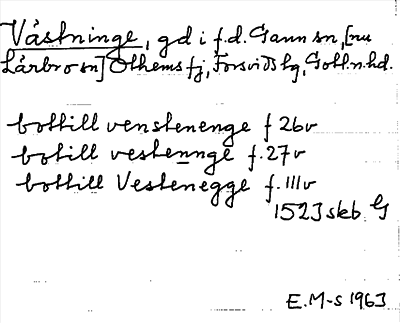 Västninge, gd i f.d. Gann sn, [nu
Lärbro sn] Othems fj, Forsvids tg, Gotl.n.hd.
bottill venstenenge f 26v
botill vestennge f.27v
bottill Vestenegge f.111v
1523 skb G
E.M-s 1963